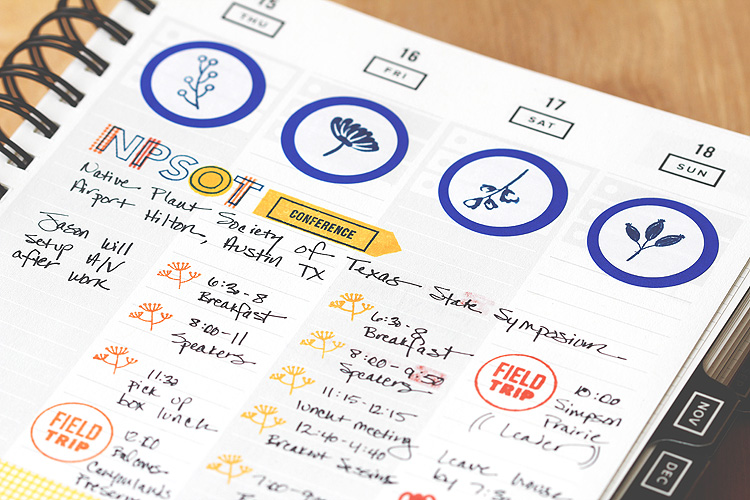 15
THU
16
FRI
17
SAT
18
SUN
NPSOT
CONFERENCE
Native Plant Society of Texas State Symposium
Airport Hilton, Austin TX
Jason will
Setup A/V
after work
6:30-8
Breakfast
8:00-11
Speakers
11:30
Pick up
box lunch
FIELD
TRIP
12:00
Palomas
Canyonlands
Preserve
6:30-8
Breakfast
8:00-9:50
Speakers
11:15-12:15
lunch meeting
12:40-4:40
Breakout Sessions
7:00-9:00
FIELD
TRIP
10:00
Simpson
Prairie
(Leader)
Leave house
by 7:30
NOV
DEC